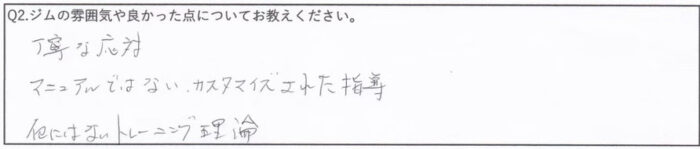 Q2.ジムの雰囲気や良かった点についてお教えください。
丁寧な応対
マニュアルではない、カスタマイズされた指導
他にはないトレーニング理論